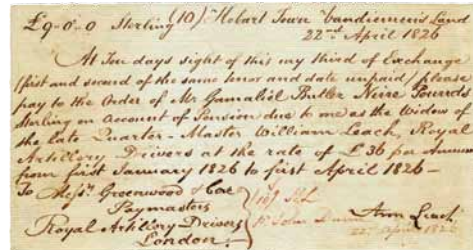 £9-0-0 Sterling (10) Hobart Town Vandiemen's Land
22nd April 1826
At Ten days sight of this my third of Exchange
(first and second of the same tenor and date unpaid) please
pay to the Order of Mr Gamaliel Butler Nine Pounds
Sterling on Account of Pension due to me as the Widow of
the late Quarter-Master William Leach, Royal
Artillery Drivers at the rate of £36 per Annum
from first January 1826 to first April 1826 —
To Messrs. Greenwood & Cox
Paymasters
Royal Artillery Drivers
London
John
Ann Leach
22nd April 1826